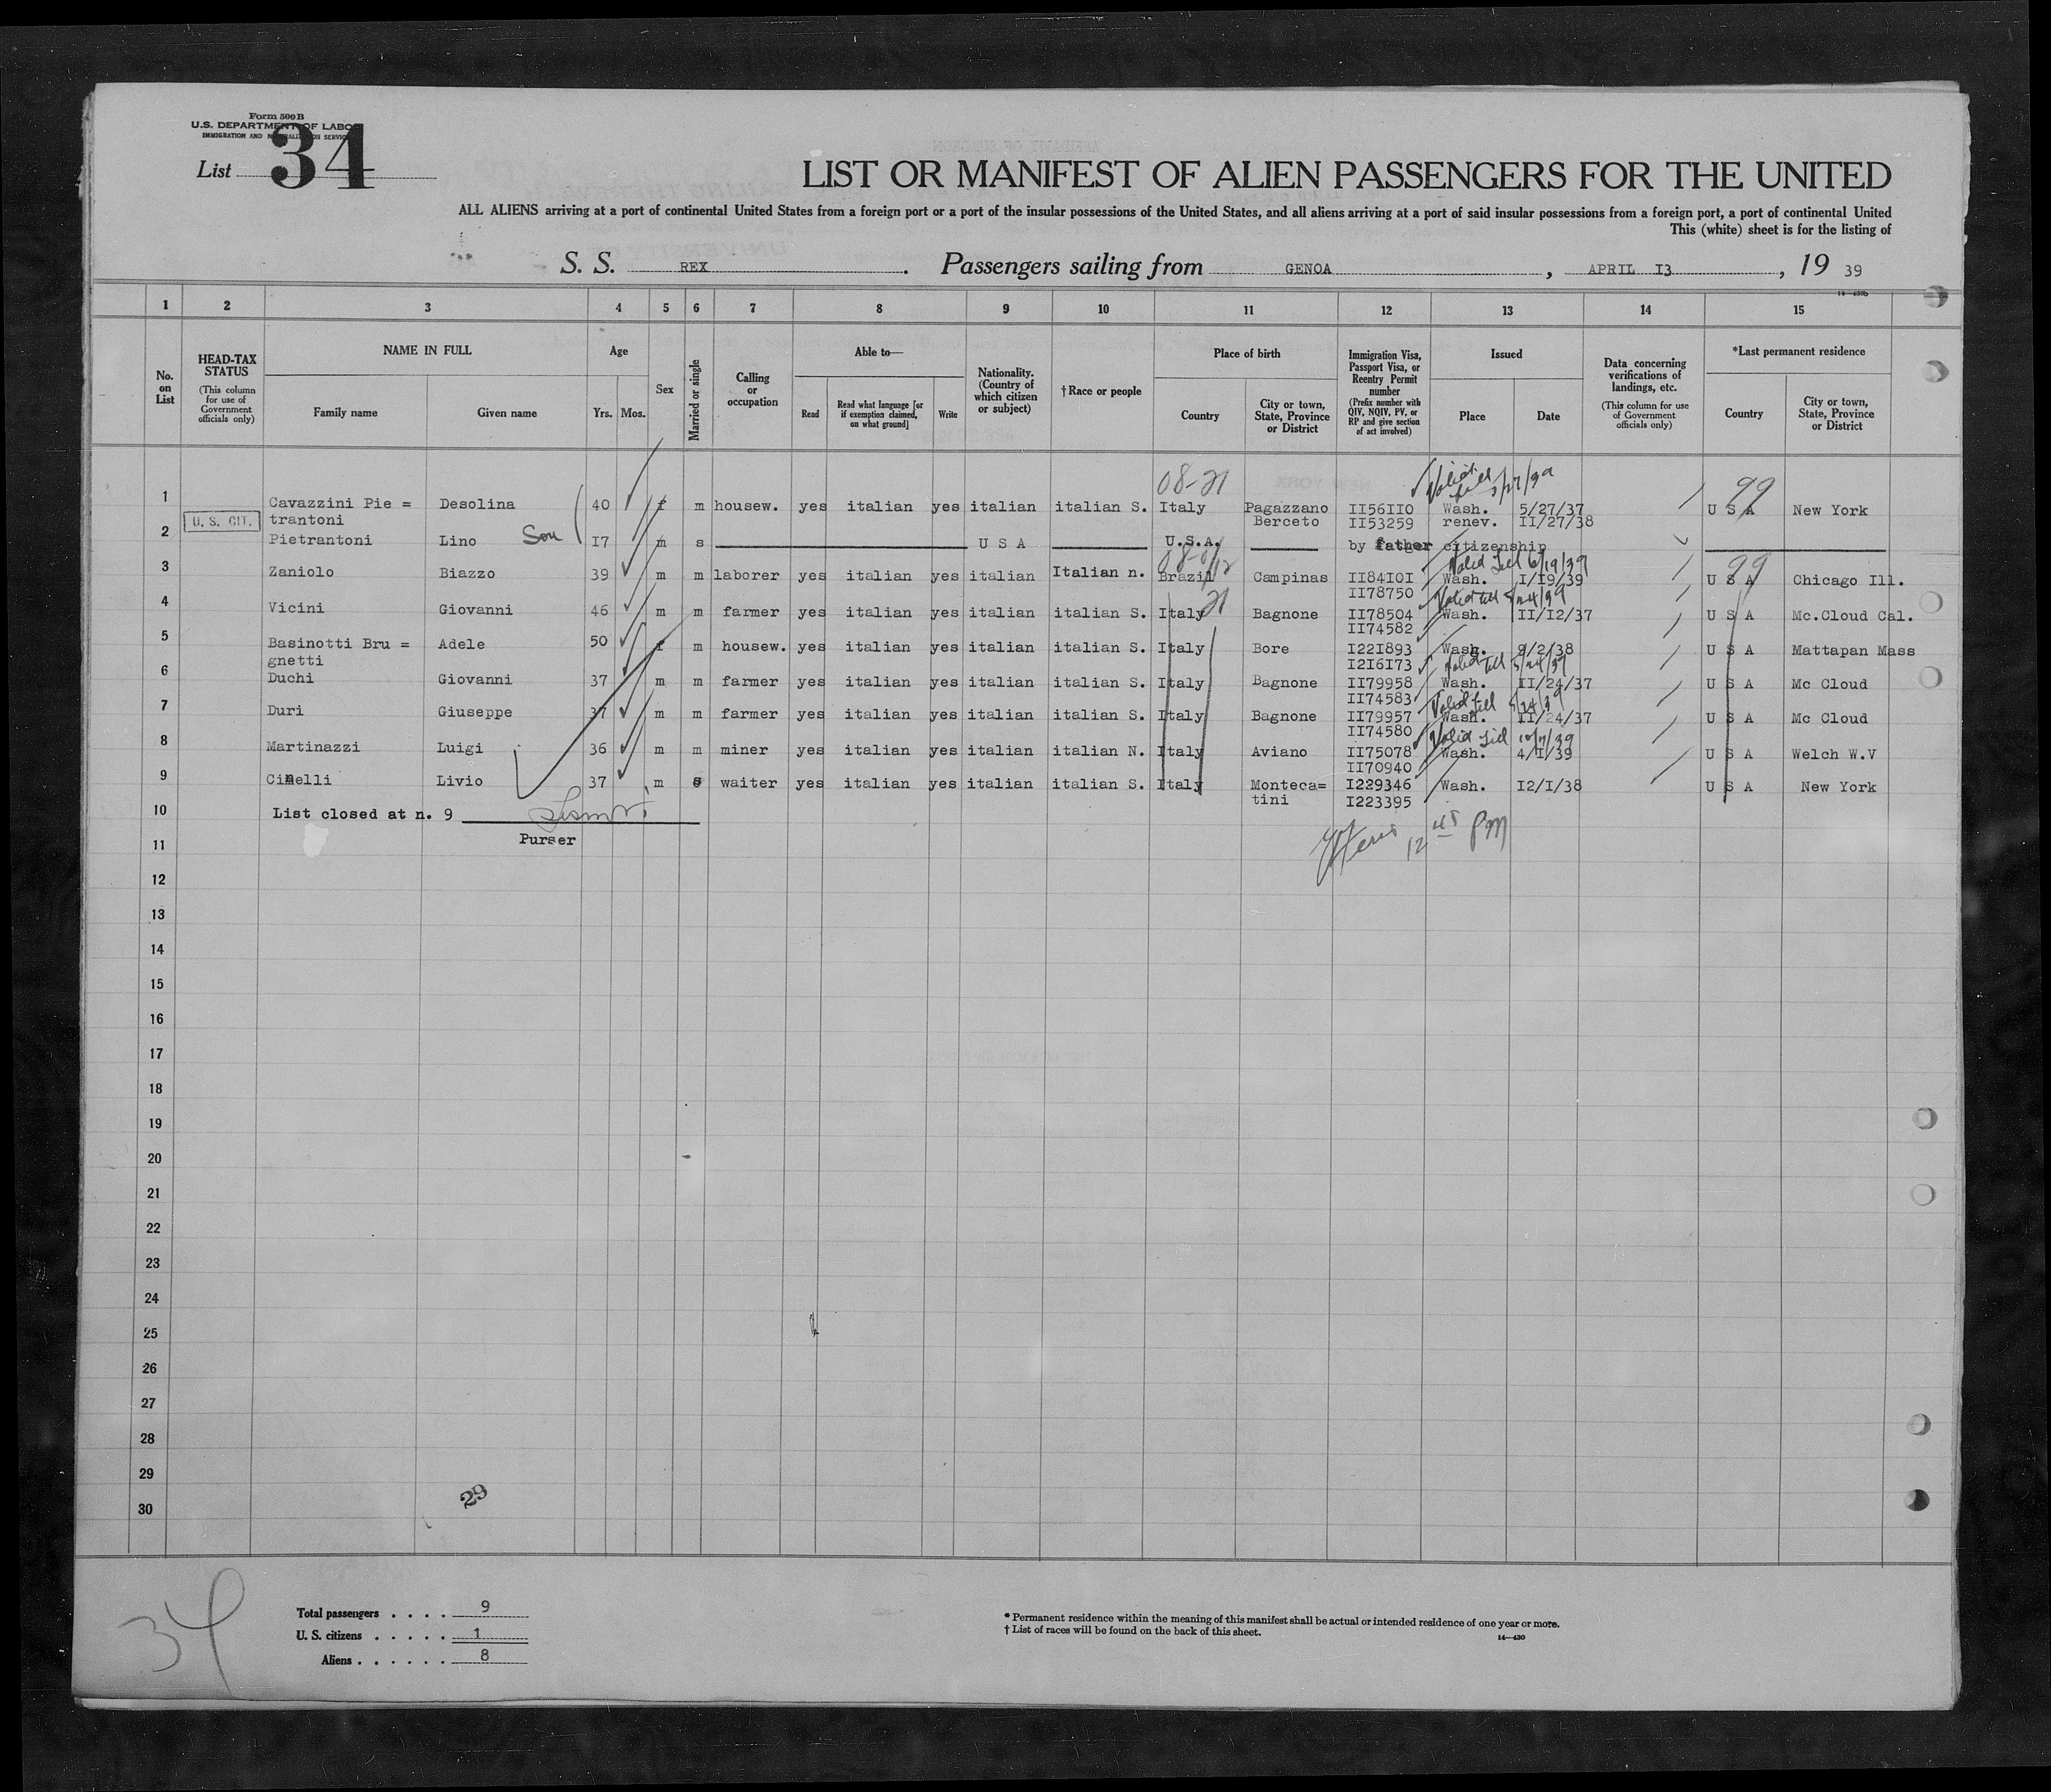 Form 500 B
U.S. DEPARTMENT OF LABOR
IMMIGRATION AND NATURALIZATION SERVICE
List 34
LIST OR MANIFEST OF ALIEN PASSENGERS FOR THE UNITED
ALL ALIENS arriving at a port of continental United States from a foreign port or a port of the insular possessions of the United States, and all aliens arriving at a port of said insular possessions from a foreign port, a port of continental United
This (white) sheet is for the listing of
S. S. REX. Passengers sailing from GENOA, APRIL I3, 19 39
1 2 3 4 5 6 7 8 9 10 11 12 13 14 15
No. on List
HEAD-TAX STATUS (This column for use of Government officials only)
NAME IN FULL Family name Given name
Age Yrs. Mos.
Sex
Married or single
Calling or occupation
Able to— Read Read what language [or if exemption claimed, on what ground] Write
Nationality. (Country of which citizen or subject)
† Race or people
Place of birth Country City or town, State, Province or District
Immigration Visa, Passport Visa, or Reentry Permit number (Prefix number with QIV, NQIV, PV, or RP and give section of act involved)
Issued Place Date
Data concerning verifications of landings, etc. (This column for use of Government officials only)
*Last permanent residence Country City or town, State, Province or District
08-21 Valid till 5/27/39 99
1 Cavazzini Pie = Desolina 40 f m housew. yes italian yes italian italian S. Italy Pagazzano II56II0 Wash. 5/27/37 U S A New York
U. S. CIT. trantoni Berceto II53259 renev. II/27/38
2 Pietrantoni Lino Son I7 m s U S A U.S.A. by father citizenship
08-01/12 Valid till 6/19/39 99
3 Zaniolo Biazzo 39 m m laborer yes italian yes italian Italian n. Brazil Campinas II84I0I Wash. I/I9/39 U S A Chicago Ill.
II78750
21 Valid till 5/24/39
4 Vicini Giovanni 46 m m farmer yes italian yes italian italian S. Italy Bagnone II78504 Wash. II/I2/37 U S A Mc.Cloud Cal.
II74582
5 Basinotti Bru = Adele 50 f m housew. yes italian yes italian italian S. Italy Bore I22I893 Wash. 9/2/38 U S A Mattapan Mass
gnetti I2I6I73 Valid till 5/24/39
6 Duchi Giovanni 37 m m farmer yes italian yes italian italian S. Italy Bagnone II79958 Wash. II/24/37 U S A Mc Cloud
II74583 Valid till 5/24/39
7 Duri Giuseppe 37 m m farmer yes italian yes italian italian S. Italy Bagnone II79957 Wash. II/24/37 U S A Mc Cloud
II74580 Valid till 10/7/39
8 Martinazzi Luigi 36 m m miner yes italian yes italian italian N. Italy Aviano II75078 Wash. 4/I/39 U S A Welch W.V
II70940
9 Cinelli Livio 37 m s waiter yes italian yes italian italian S. Italy Monteca= I229346 Wash. I2/I/38 U S A New York
tini I223395
10 List closed at n. 9
Purser
12 45 PM
11
12
13
14
15
16
17
18
19
20
21
22
23
24
25
26
27
28
29
30
29
34
Total passengers . . . . 9
U. S. citizens . . . . . 1
Aliens . . . . . . 8
* Permanent residence within the meaning of this manifest shall be actual or intended residence of one year or more.
† List of races will be found on the back of this sheet.
14—430